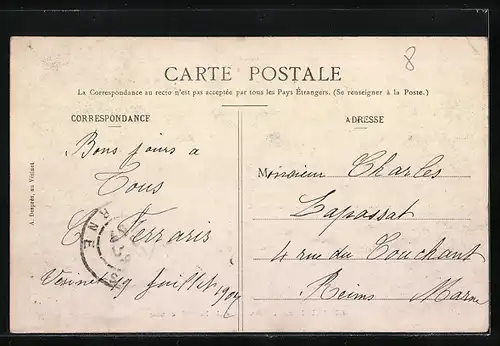 8
CARTE POSTALE
La Correspondance au recto n'est pas acceptée par tous les Pays Étrangers. (Se renseigner à la Poste.)
CORRESPONDANCE
Bons jours a
Tous
C. Ferraris
Vésinet 9 Juillet 1907
ADRESSE
Monsieur Charles
Lapassat
4 rue du Couchant
Reims Marne
A. Desprès, au Vésinet
RNE